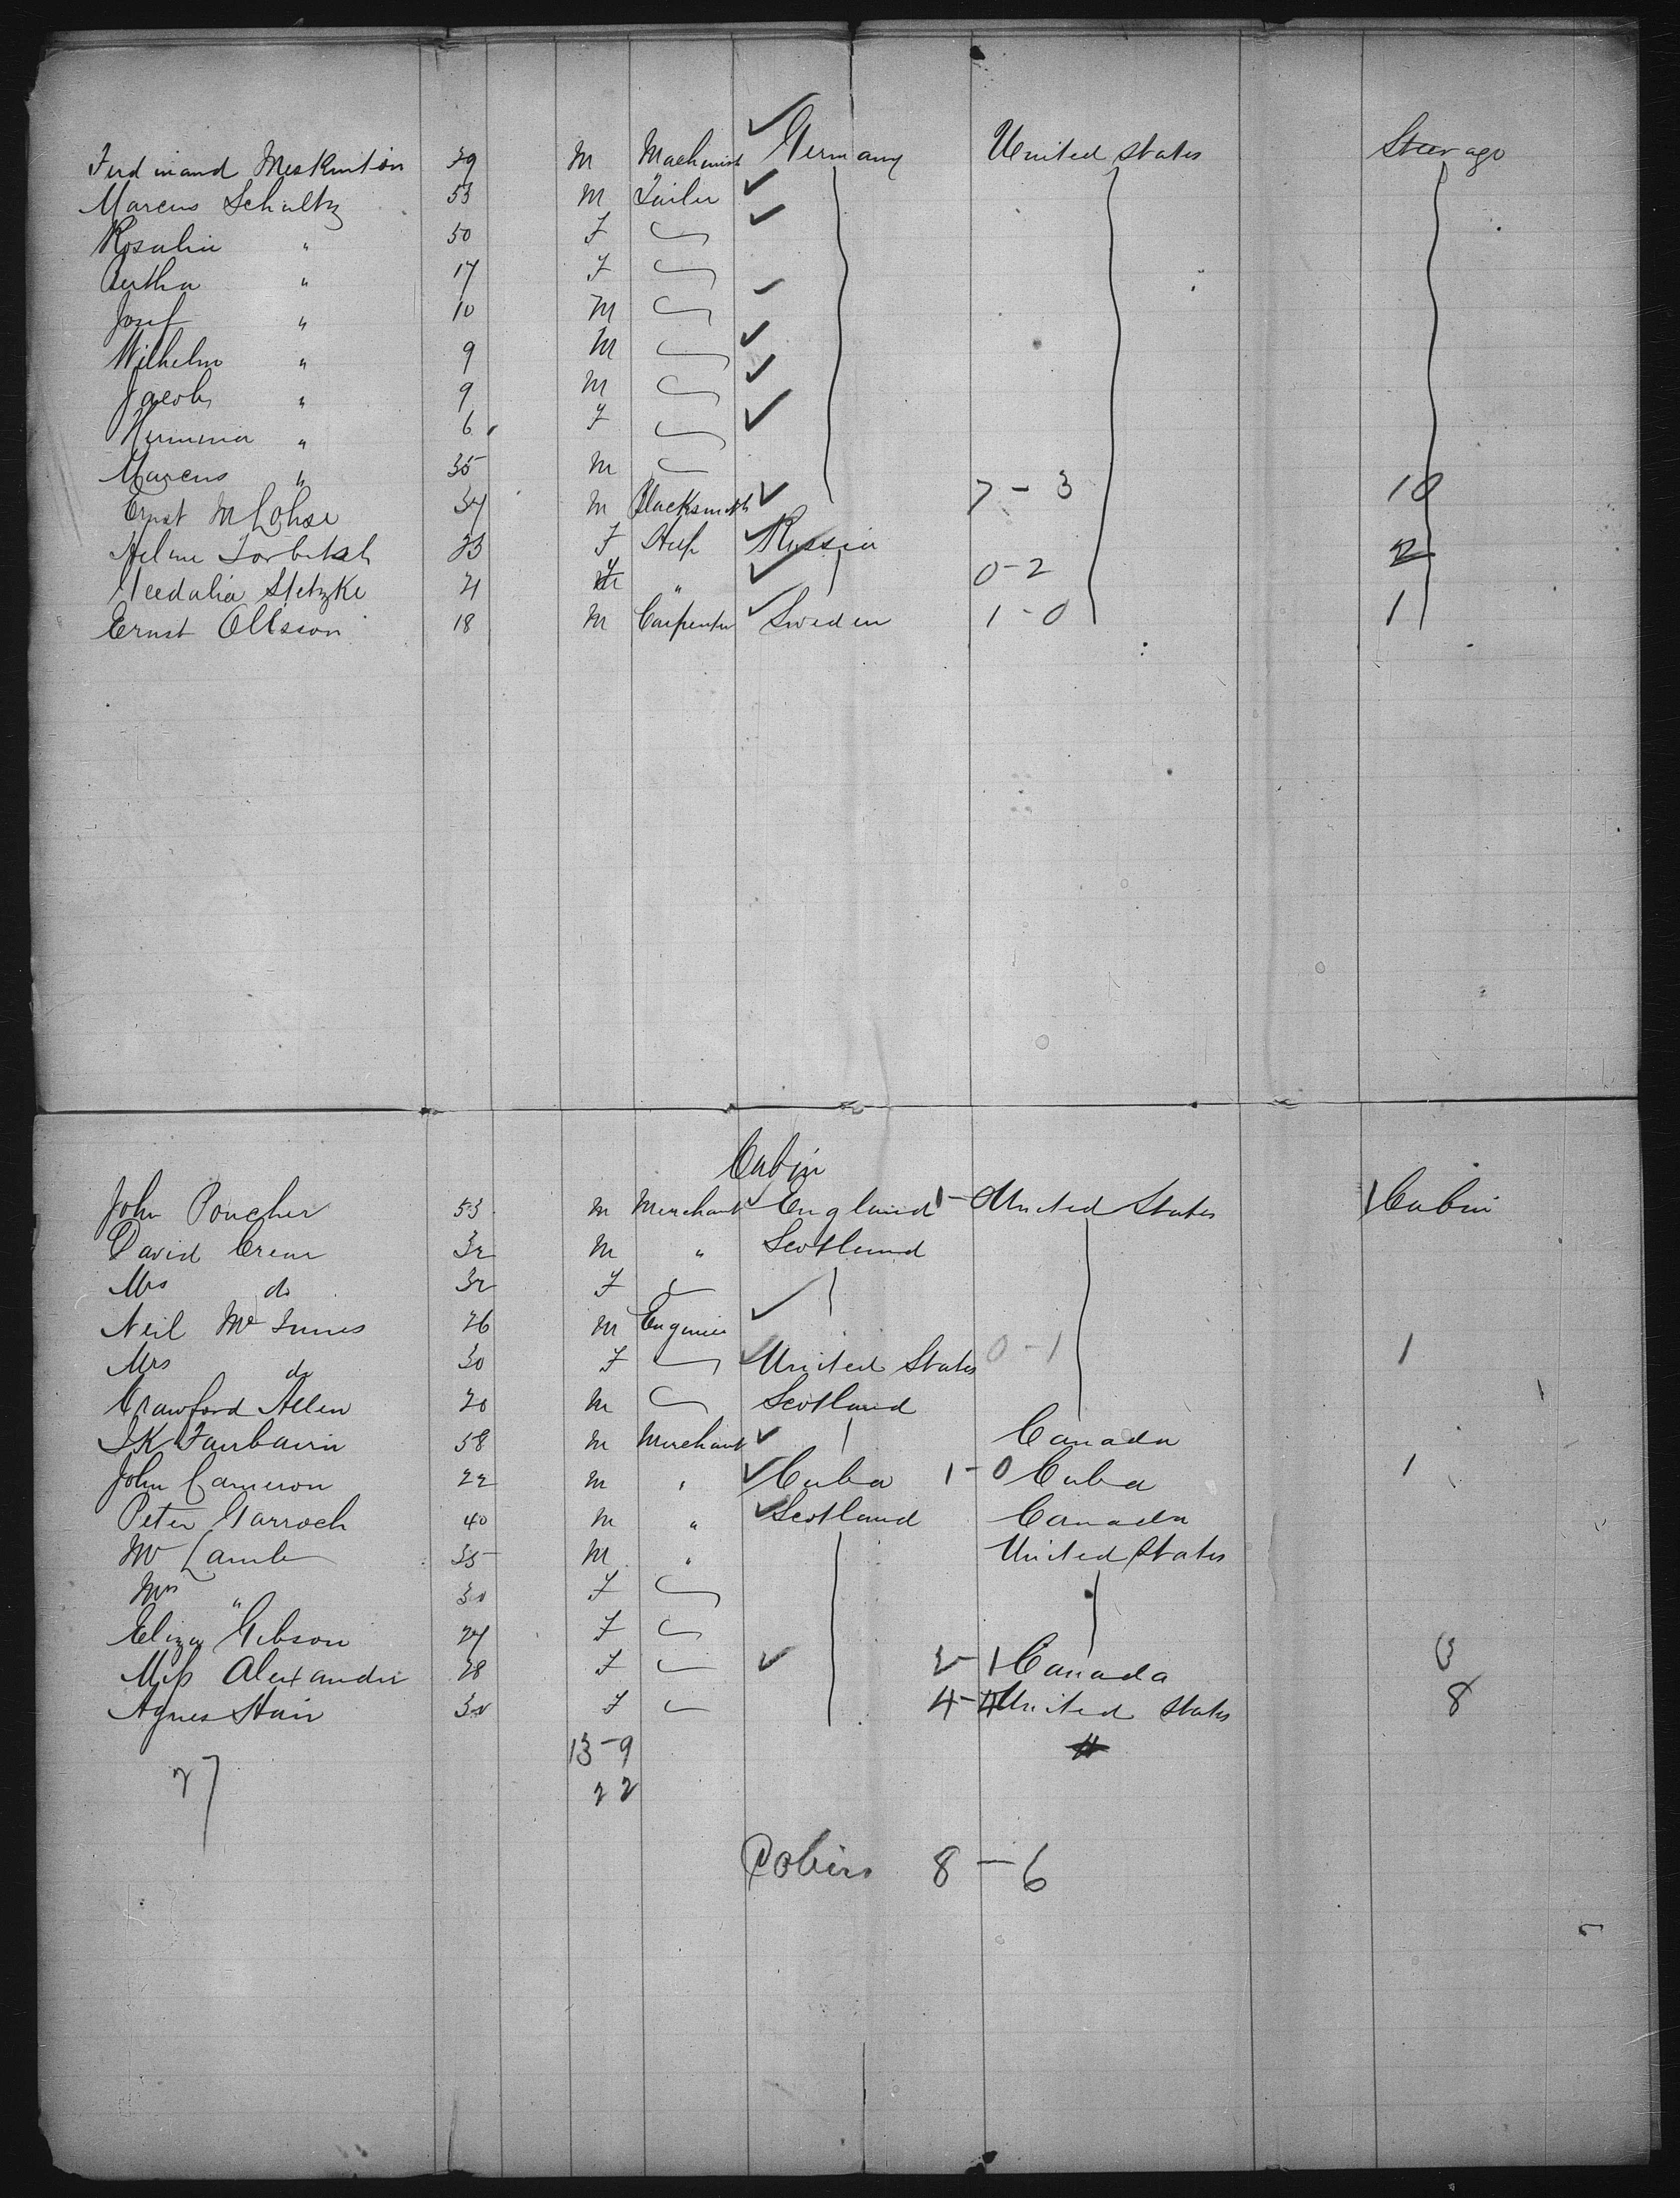 Ferdinand Meskinton 39 M Machinist ✓ Germany United States Steerage
Marcus Schultz 53 M Tailor ✓
Rosalia " 50 F ✓
Bertha " 17 F
Josef " 10 M ✓
Wilhelm " 9 M ✓
Jacob " 9 M ✓
Hermina " 6 F ✓
Marcus " 35 M
Ernst M Lohse 34 M Blacksmith ✓ 7 - 3 10
Helene 23 F ✓ Russia 2
Stetzke 21 F " ✓ 0 - 2
Ernst Ollsson 18 M Carpenter ✓ Sweden 1 - 0 1
Cabin
John Poucher 53 M Merchant ✓ England 1 - 0 United States 1 Cabin
David Crear 32 M " Scotland
Mrs do 32 F
Neil Mc Innes 26 M Engineer ✓
Mrs do 30 F ✓ United States 0 - 1 1
Crawford Allen 20 M Scotland
Fairbairn 58 M Merchant ✓ Canada
John Cameron 22 M " ✓ Cuba 1 - 0 Cuba 1
Peter Garroch 40 M " ✓ Scotland Canada
Mr Lamb 35 M " United States
Mrs " 30 F
Eliza Gibson 24 F
Miss Alexander 28 F ✓ 2 - 1 Canada 3
Agnes Stair 30 F 4 - 4 United States 8
13 - 9
27
22
Cabin 8 - 6